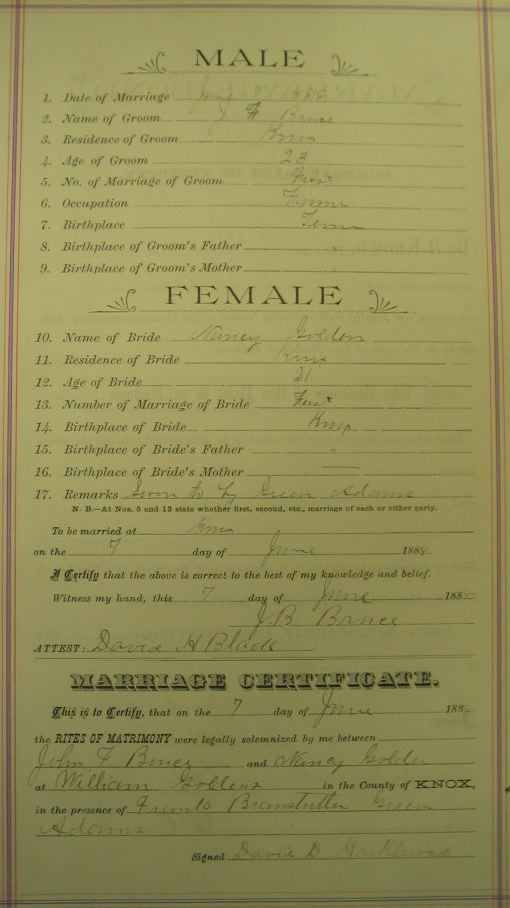 MALE
1. Date of Marriage June 7
2. Name of Groom J F Bruce
3. Residence of Groom Knox
4. Age of Groom 23
5. No. of Marriage of Groom First
6. Occupation Farmer
7. Birthplace Tenn
8. Birthplace of Groom's Father "
9. Birthplace of Groom's Mother
FEMALE
10. Name of Bride Nancy Golden
11. Residence of Bride Knox
12. Age of Bride 21
13. Number of Marriage of Bride First
14. Birthplace of Bride Knox
15. Birthplace of Bride's Father "
16. Birthplace of Bride's Mother
17. Remarks Sworn to by Green Adams
N. B.—At Nos. 5 and 13 state whether first, second, etc., marriage of each or either party.
To be married at Knox
on the 7 day of June 1888
I Certify that the above is correct to the best of my knowledge and belief.
Witness my hand, this 7 day of June 188
J B Bruce
ATTEST: David H Black
MARRIAGE CERTIFICATE.
This is to Certify, that on the 7 day of June 1888
the RITES OF MATRIMONY were legally solemnized by me between
John F Brucy and Nancy Golden
at William Goldens in the County of KNOX,
in the presence of Branstutter Green
Adams
Signed David D